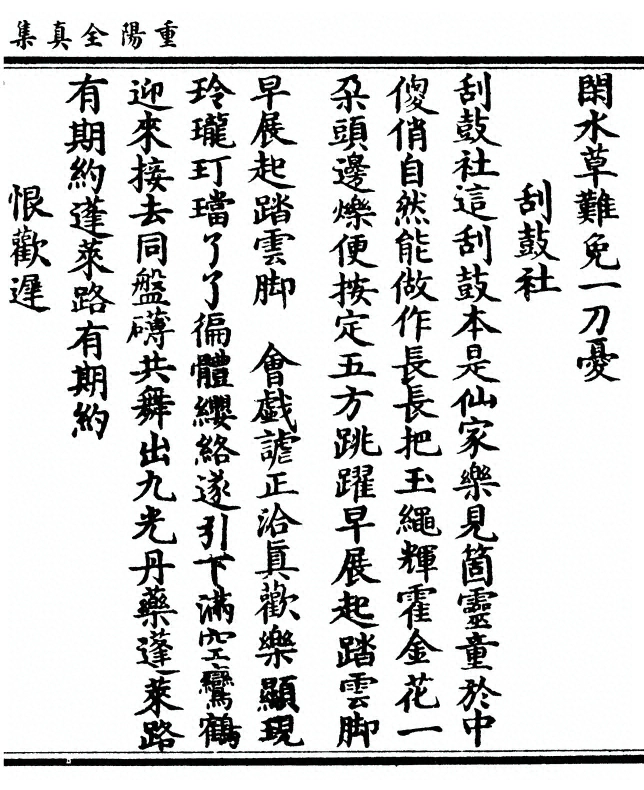 重陽全真集
閑水草難免一刀憂
刮鼓社
刮鼓社這刮鼓本是仙家樂見箇靈童於中
傻俏自然能做作長長把玉繩輝霍金花一
朶頭邊爍便按定五方跳躍早展起踏雲脚
早展起踏雲脚　會戱謔正洽眞歡樂顯現
玲瓏玎璫了了徧體纓絡遂引下滿空鸞鶴
迎來接去同盤礴共舞出九光丹藥蓬萊路
有期約蓬萊路有期約
恨歡遲